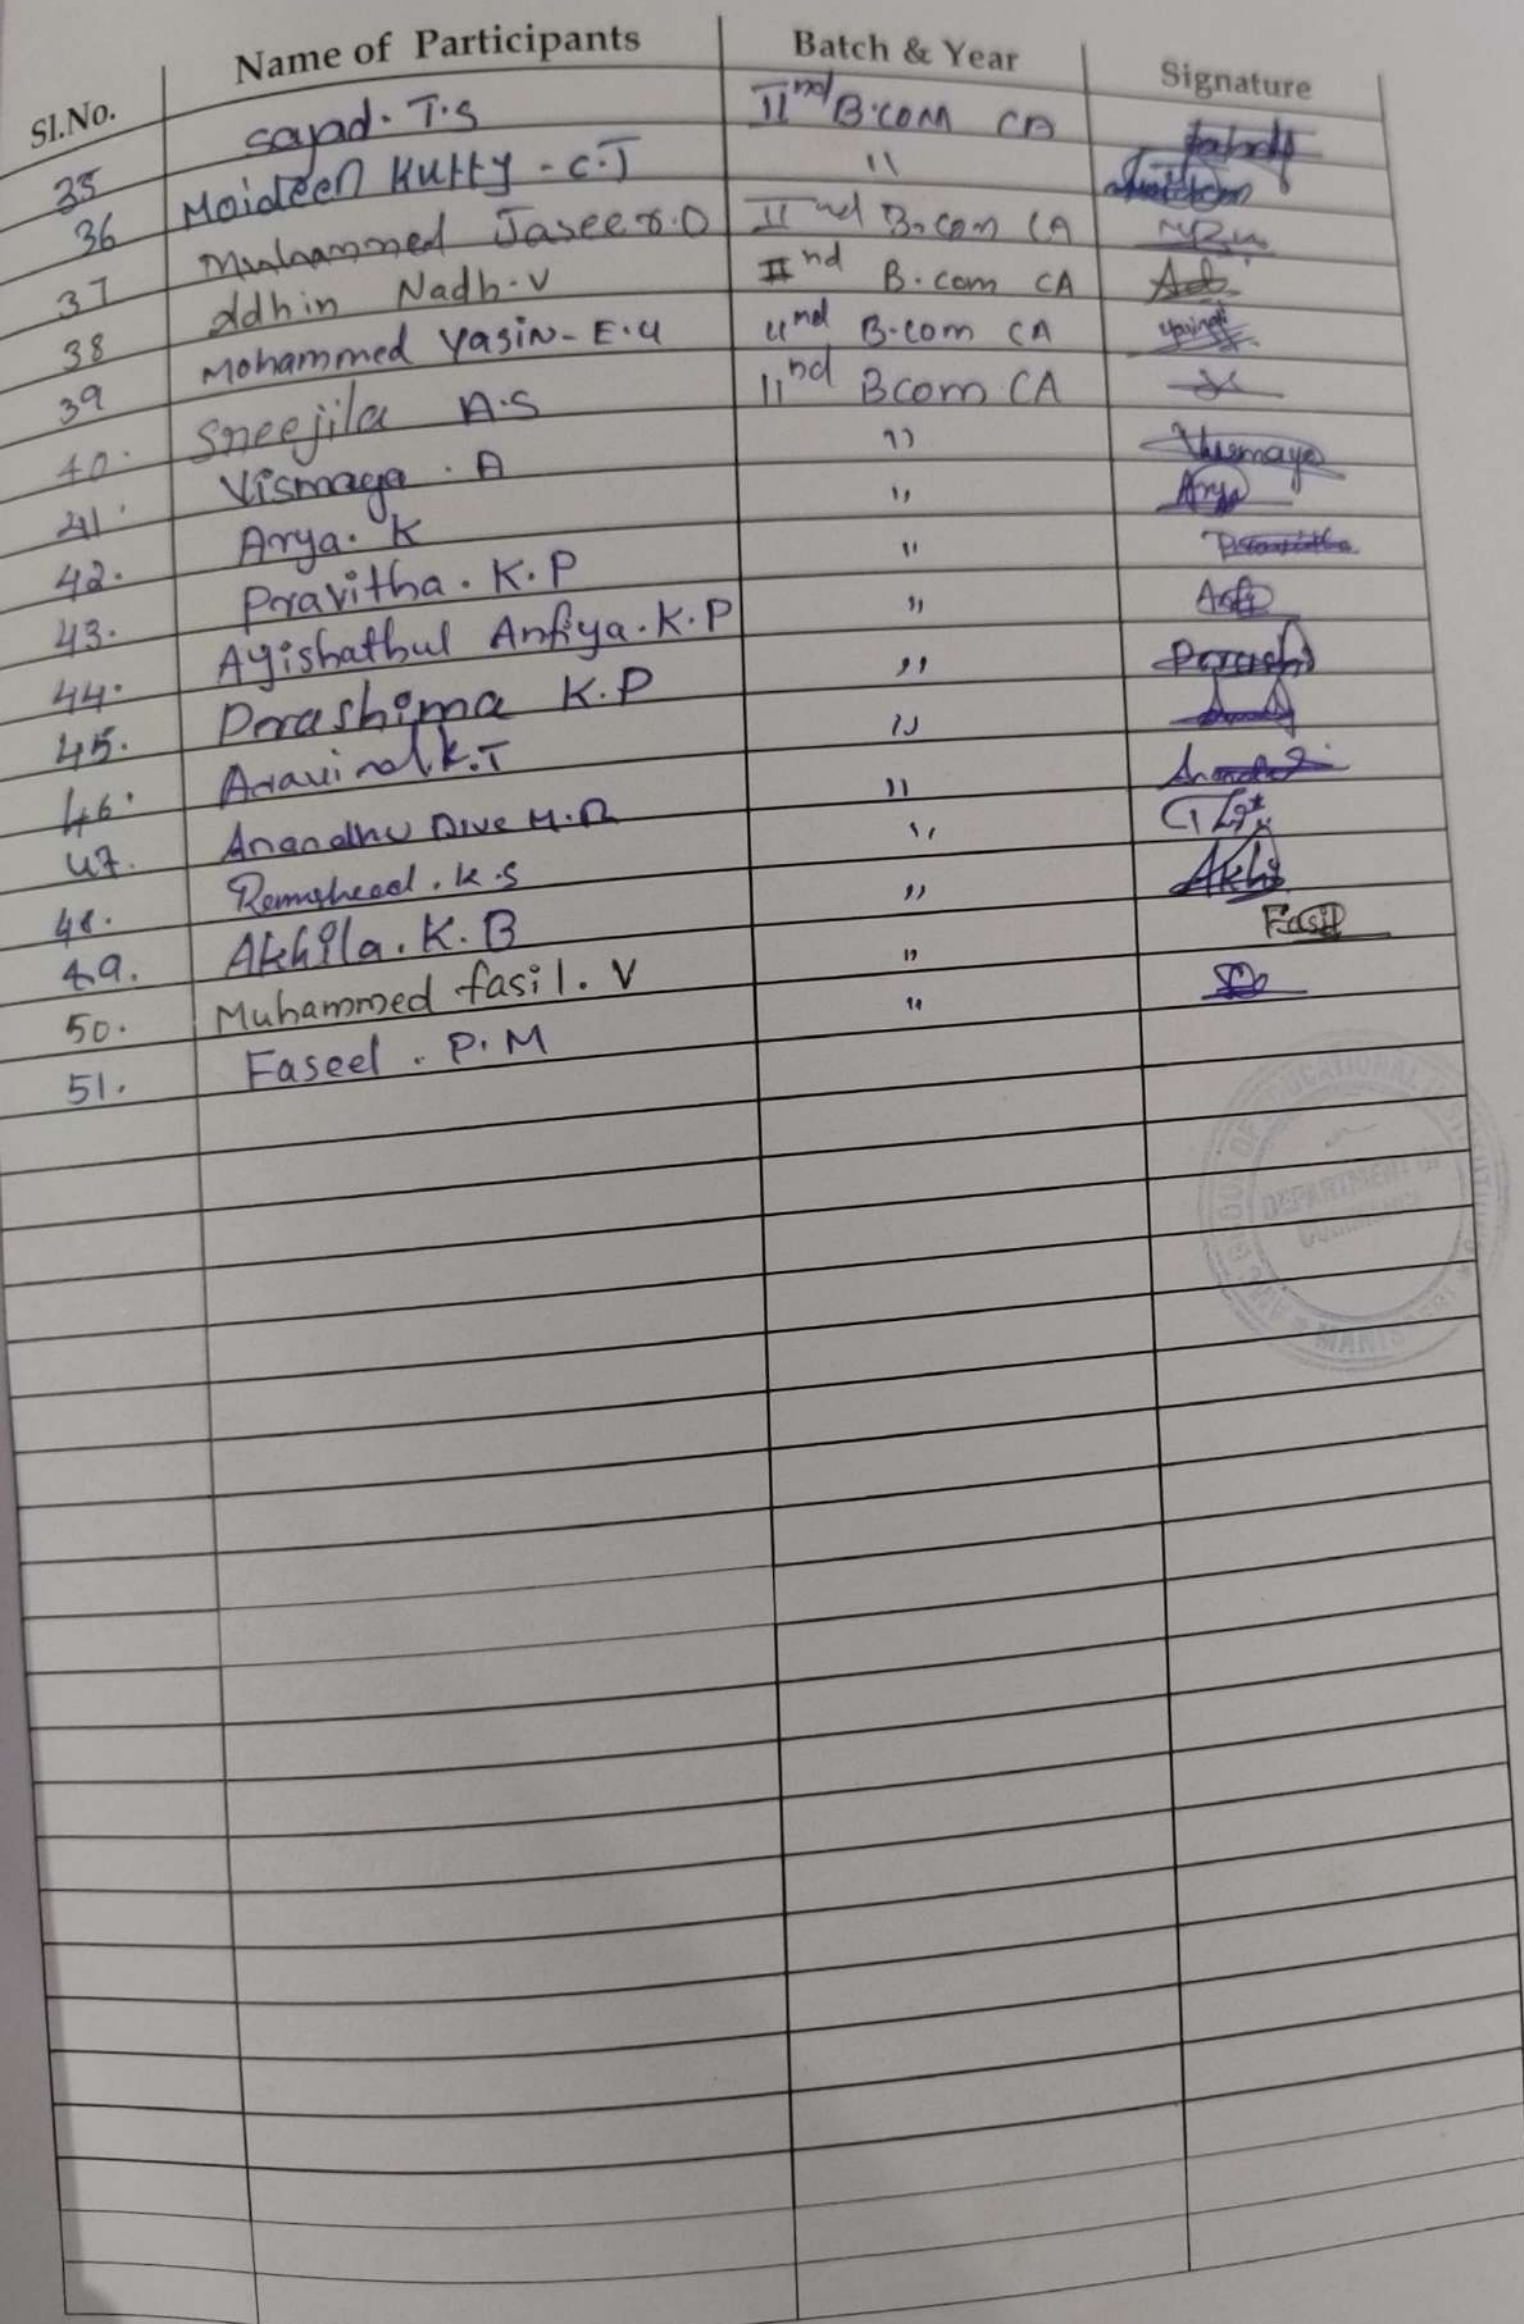 Sl.No. Name of Participants Batch & Year Signature
35 Sayad. T.S IInd B.com CA
36 Moideen Kutty - C.T "
37 Muhammed Jaseer.O IInd B.com CA
38 Adhin Nadh.V IInd B.com CA
39 Mohammed Yasin - E.U IInd B.com CA
40. Sreejila A.S IInd Bcom CA
41. Vismaya . A " Vismaya
42. Arya. K " Arya
43. Pravitha. K.P " Pravitha
44. Ayishathul Anfiya. K.P "
45. Prashima K.P "
46. Aravind.K.T "
47. Anandhu "
48. K.S "
49. Akhila. K. B " Akhi
50. Muhammed fasil. V " Fasil
51. Faseel . P. M "
GROUP OF EDUCATIONAL INSTITUTIONS
DEPARTMENT OF
COMMERCE